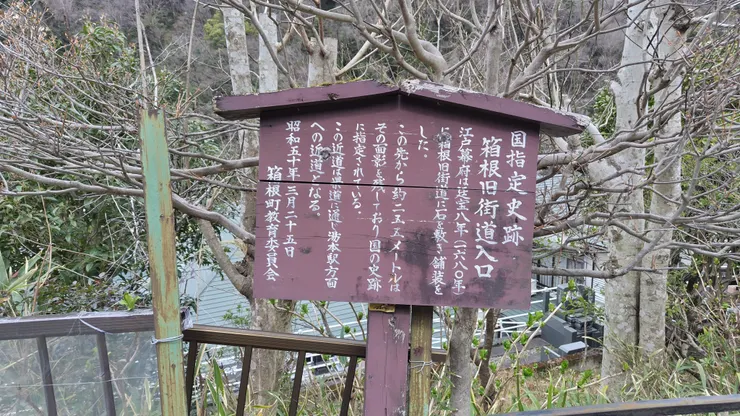 国指定史跡
箱根旧街道入口
江戸幕府は延宝八年(一六八〇年)
箱根旧街道に石を敷き舗装を
した。
この先から約二五五メートルは
その面影を残しており国の史跡
に指定されている。
この近道は県道に通じ湯本駅方面
への近道となる。
昭和五十年三月二十五日
箱根町教育委員会